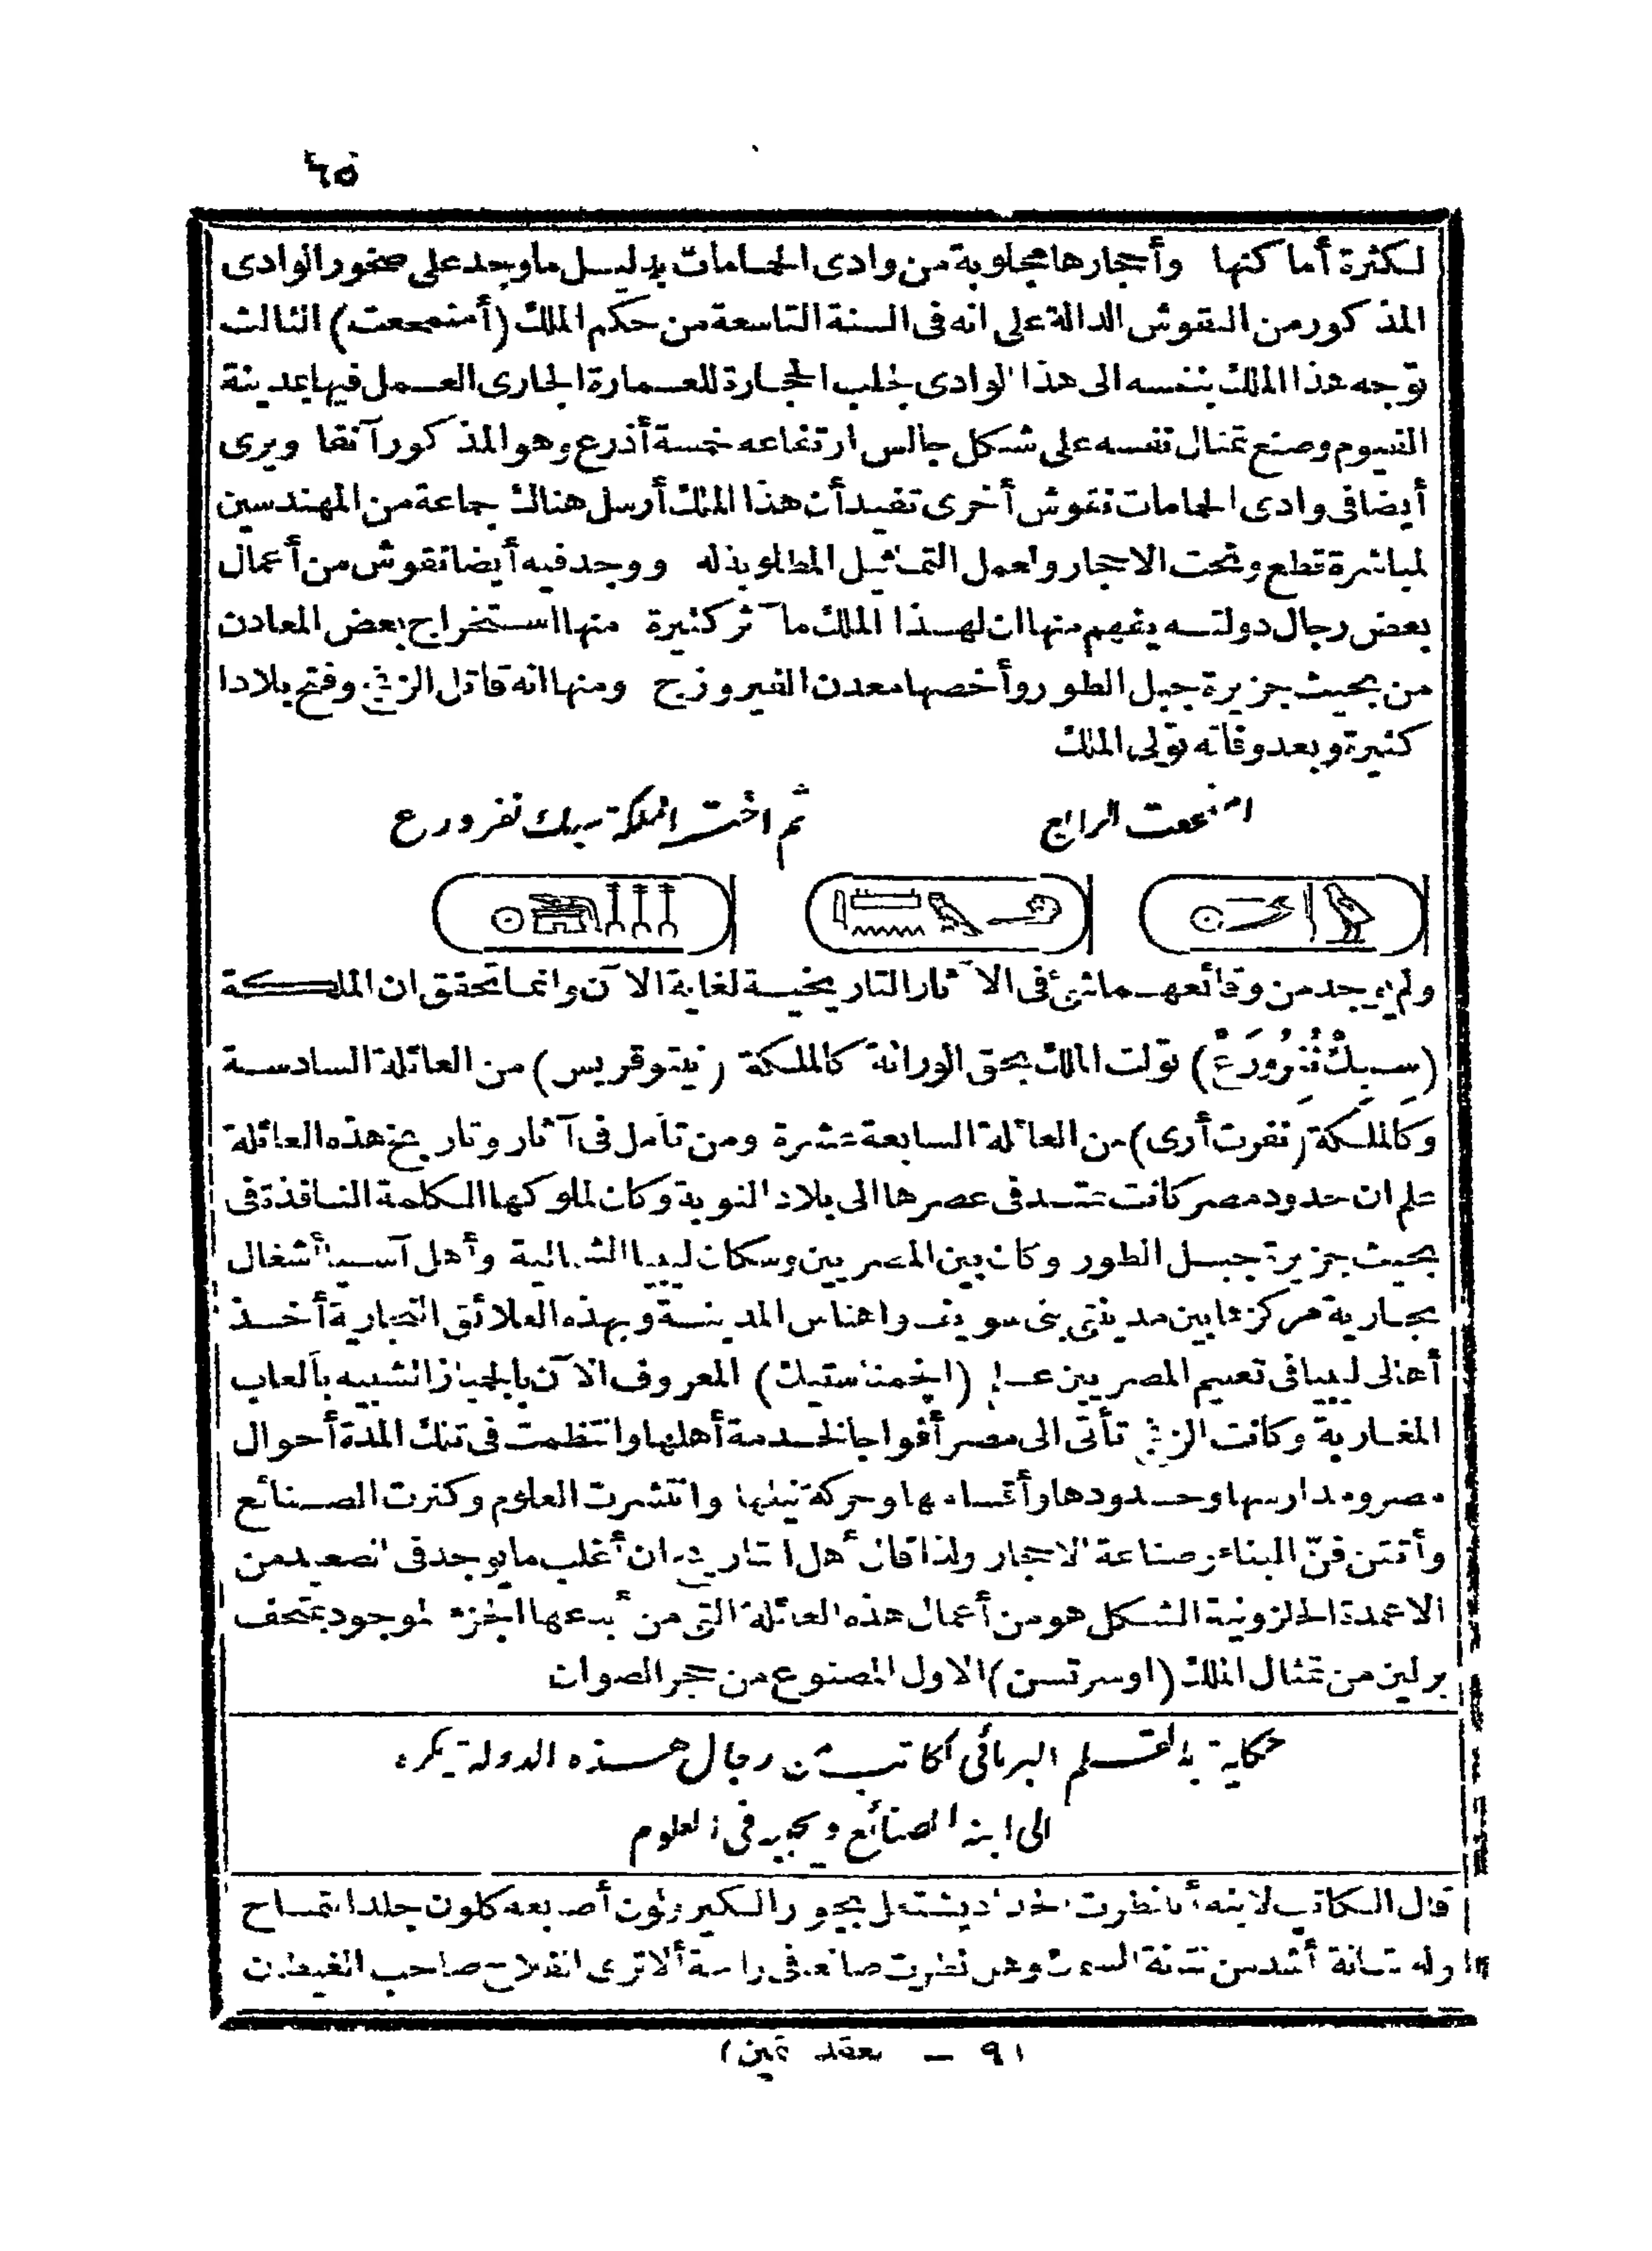 ٦٥
لكثرة أماكنها وأحجارها مجلوبة من وادى الحمامات بدليل ما وجد على صخور الوادى
المذكور من النقوش الدالة على انه فى السنة التاسعة من حكم الملك (أمنمحعت) الثالث
توجه هذا الملك بنفسه الى هذا الوادى لجلب الحجارة للعمارة الجارى العمل فيها بمدينة
الفيوم وصنع تمثال نفسه على شكل جالس ارتفاعه خمسة أذرع وهو المذكور آنفا ويرى
أيضا فى وادى الحمامات نقوش أخرى تفيد أن هذا الملك أرسل هناك جماعة من المهندسين
لمباشرة قطع ونحت الاحجار ولعمل التماثيل المطلوبة له ووجد فيه أيضا نقوش من أعمال
بعض رجال دولته يفهم منها ان لهذا الملك مآثر كثيرة منها استخراج بعض المعادن
من بحيث جزيرة جبل الطور وأخصها معدن الفيروزج ومنها انه قاتل الزنج وفتح بلادا
كثيرة وبعد وفاته تولى الملك
امنمحعت الرابع
ثم اخت الملكة سبك نفرورع
ولم يوجد من وقائعهما شئ فى الآثار التاريخية لغاية الآن وانما تحقق ان الملكة
(سبك نفرورع) تولت الملك بحق الوراثة كالملكة (نيتوقريس) من العائلة السادسة
وكالملكة (نفرت أرى) من العائلة السابعة عشرة ومن تأمل فى آثار وتاريخ هذه العائلة
علم ان حدود مصر كانت تمتد فى عصرها الى بلاد النوبة وكان لملوكها الكلمة النافذة فى
بحيث جزيرة جبل الطور وكان بين المصريين وسكان ليبيا الشمالية وأهل آسيا أشغال
تجارية مركزها بين مدينتى بنى سويف واهناس المدينة وبهذه العلائق التجارية أخذ
أهالى ليبيا فى تعليم المصريين علم (الجمناستيك) المعروف الآن بالجمباز الشبيه بألعاب
المغاربة وكانت الزنج تأتى الى مصر أفواجا لخدمة أهلها وانتظمت فى تلك المدة أحوال
مصر ومدارسها وحدودها وأقسامها وحركة نيلها وانتشرت العلوم وكثرت الصنائع
وأتقن فن البناء وصناعة الاحجار ولذا قال أهل التاريخ ان أغلب ما يوجد فى الصعيد من
الاعمدة الحلزونية الشكل هو من أعمال هذه العائلة التى من أبدعها الجزء الموجود بمتحف
برلين من تمثال الملك (اوسرتسن) الاول المصنوع من حجر الصوان
حكاية بالقلم البربائى لكاتب من رجال هذه الدولة يكره
الى ابنه الصنائع ويحببه فى العلوم
قال الكاتب لابنه أما نظرت الحداد يشتغل بجوار الكير ولون أصبعه كلون جلد التمساح
وله نتانة أشد من نتنة السمك وهل نظرت صانعا فى راحة ألا ترى الفلاح صاحب الغيط
(٩ – عقد ثمين)